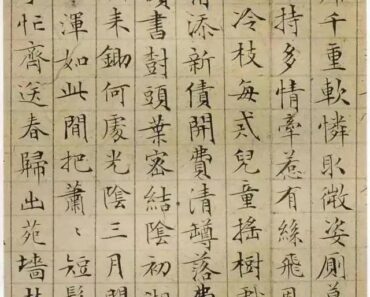 千重軟憐臥微姿側
持多情牽惹有絲飛
冷枝每忒兒童搖樹
添新債開費清罇落費
書封頭葉密結陰初
耒鋤何處光陰三月
渾如此間把蕭〻短
忙齊送春歸出苑墻